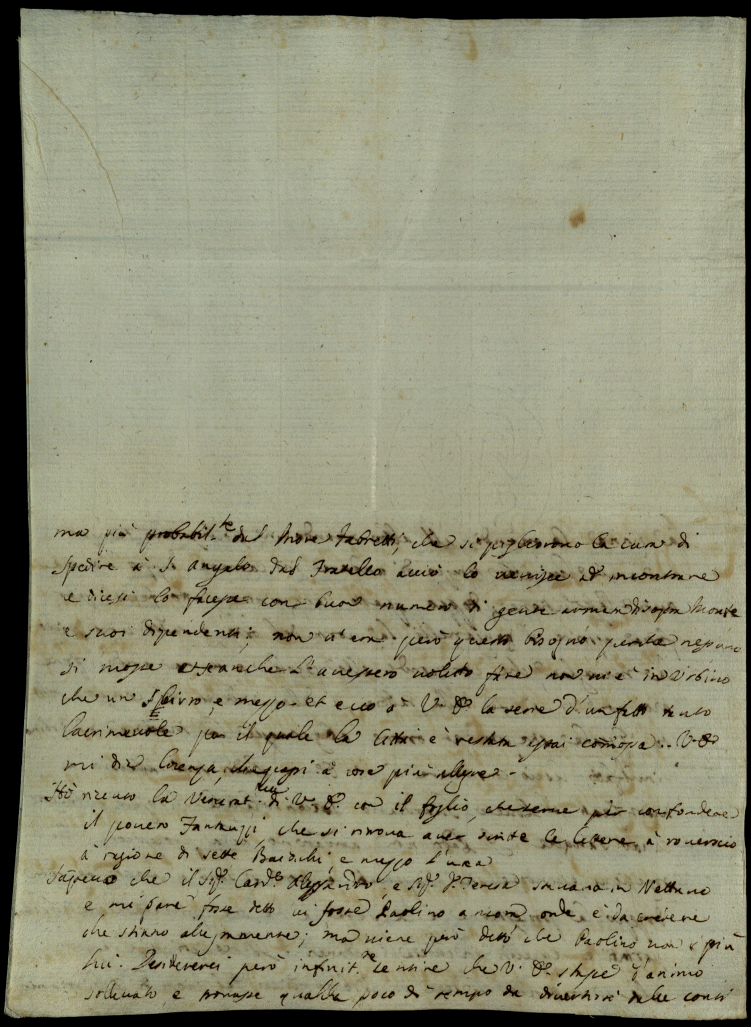 ma più probabil.te dal Mons.e Fabretti, che si pigliorono la cura di
spedire a S. Angelo dal Fratello acciò lo venisse ad incontrare
e dicesi lo facesse con buon numero di gente armata di sopra Monte
e suoi dipendenti; non vi era però questo bisogno perche nessuno
si mosse e se anche l'avessero voluto fare non vi è in Urbino
che un sbirro, e mezzo. et ecco a V. E. la serie d'un fatto tanto
lacrimevole per il quale la Città è restata assai comossa. V. E.
mi dia licenza, che passi a cose più allegre.
Hò riceuto la Venerat.ma di V. E. con il foglio, che serve per confondere
il povero Fantuzzi che si ritrova aver scritte le lettere a rovescio
à ragione di sette Baiocchi, e mezzo l'una
Sapremo che il Sig.r Card.le Alessandro e Sig.ra D. Teresa stavano in Nettuno
e mi pare fosse detto vi fosse Paolino ancora onde è da credere
che stiano allegramente; ma viene però detto che Paolino non è più
lui. Desidererei però infinit.te sentire che V. E. stasse d'animo
sollevato, e trovasse qualche poco di tempo da divertirsi nelle conti